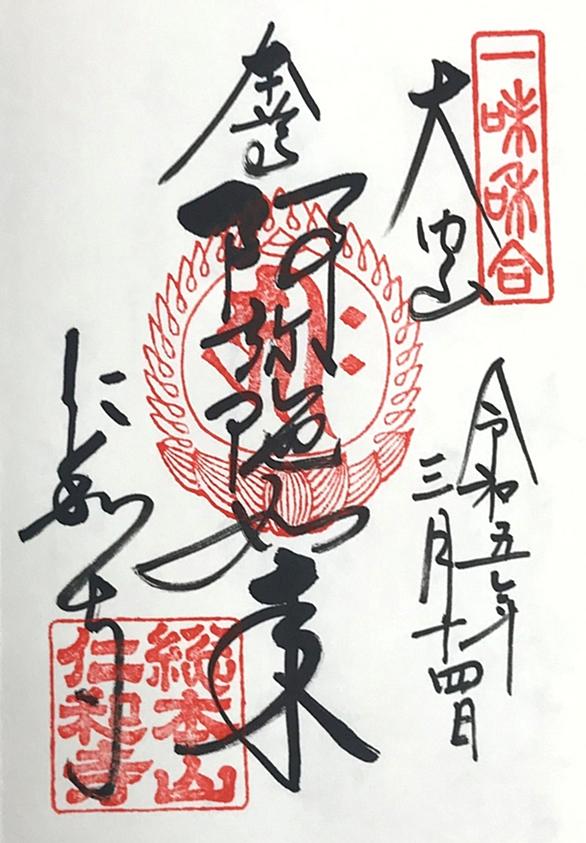 一味和合
大内山
令和五年
三月十四日
阿弥陀如来
仁和寺
総本山
仁和寺